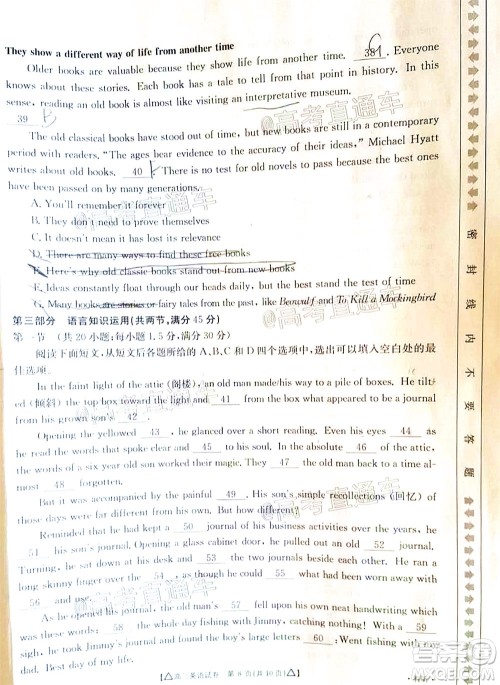 They show a different way of life from another time
Older books are valuable because they show life from another time. 38 C . Everyone
knows about these stories. Each book has a tale to tell from that point in history. In this
sense, reading an old book is almost like visiting an interpretative museum.
39 B .
The old classical books have stood out of time, but new books are still in a contemporary
period with readers. "The ages bear evidence to the accuracy of their ideas," Michael Hyatt
writes about old books. 40 There is no test for old novels to pass because the best ones
have been passed on by many generations.
A. You'll remember it forever
B. They don't need to prove themselves
C. It doesn't mean it has lost its relevance
D. There are many ways to find these free books
E. Here's why old classic books stand out from new books
F. Instances constantly float through our heads daily, but the best stand the test of time
G. Many books are stories or fairy tales from the past, like Beowulf and To Kill a Mockingbird
第三部分 语言知识运用(共两节,满分 45 分)
第一节 (共 20 小题;每小题 1.5 分,满分 30 分)
阅读下面短文,从短文后各题所给的 A、B、C 和 D 四个选项中,选出可以填入空白处的最
佳选项。
In the faint light of the attic (阁楼), an old man made his way to a pile of boxes. He tilt-
ed (倾斜) the top box toward the light and 41 from the box what appeared to be a journal
from his grown son's 42 .
Opening the yellowed 43 , he glanced over a short reading. Even his eyes 44 as
he read the words that spoke clear and 45 to his soul. In the absolute 46 of the attic,
the words of a six year old son worked their magic. They 47 the old man back to a time al-
most 48 forgotten.
But it was accompanied by the painful 49 . His son's simple recollections (回忆) of
those days were far different from his own. But how different?
Reminded that he had kept a 50 journal of his business activities over the years, he
51 his son's journal. Opening a glass cabinet door, he pulled out an old 52 .
Turning, he sat down at his desk and 53 the two journals beside each other. As he ran a
long skinny finger over the metal clasp, as though he could 54 it, he found it was 55 with
56 and use.
As he opened the journal, the old man's 57 fell upon his own neat handwriting. His
own words were so brief: "Wasted the whole day fishing with Jimmy. Didn't 59 a thing."
again, he took Jimmy's journal and found the boy's large letters 60 : Went fishing with
my dad. Best day of my life.
高一英语试卷 第 8 页(共 10 页)
密封线内不要答题
@高考直通车
@高考直通车
@高考直通车
@高考直通车